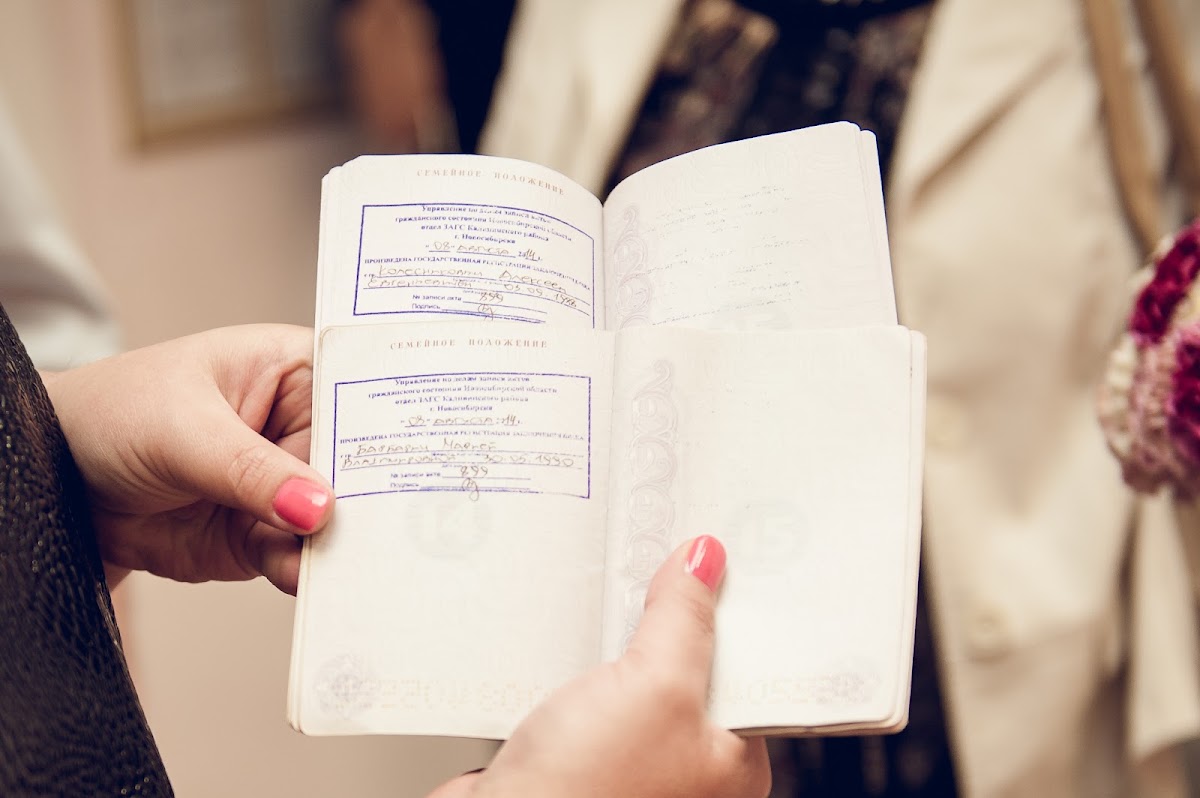 СЕМЕЙНОЕ ПОЛОЖЕНИЕ
Управление по делам записи актов
гражданского состояния Новосибирской области
отдел ЗАГС Калининского района
г. Новосибирска
"08" АВГУСТА 2014г.
ПРОИЗВЕДЕНА ГОСУДАРСТВЕННАЯ РЕГИСТРАЦИЯ ЗАКЛЮЧЕНИЯ БРАКА
с гр. Алексеем
Евгеньевичем 03.09.
№ записи акта 899
Подпись
СЕМЕЙНОЕ ПОЛОЖЕНИЕ
Управление по делам записи актов
гражданского состояния Новосибирской области
отдел ЗАГС Калининского района
г. Новосибирска
"08" АВГУСТА 2014г.
ПРОИЗВЕДЕНА ГОСУДАРСТВЕННАЯ РЕГИСТРАЦИЯ ЗАКЛЮЧЕНИЯ БРАКА
с гр. Марией
Владимировной 30.05.1990
№ записи акта 899
Подпись
14
15